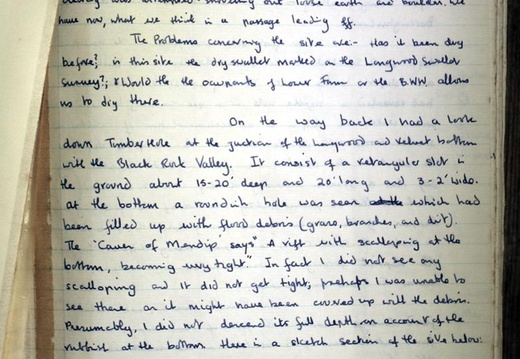 was shoveling out loose earth and boulders. We
have now, what we think is a passage leading off.
The Problems concerning the site are:- Has it been dug
before? is this site the dry swallet marked on the Longwood Swallet
survey?; & Would the the occupants of Lower Farm or the B.W.W. allow
us to dig there.
On the way back I had a look
down TimberHole at the junction of the Longwood and Velvet bottom
with the Black Rock Valley. It consist of a retangular slot in
the ground about 15-20' deep and 20' long and 3-2' wide.
at the bottom a roundish hole was seen which had
been filled up with flood debris (grass, branches, and dirt).
The "Caves of Mendip" says "A rift with scalloping at the
bottom, becoming very tight". In fact I did not see any
scalloping and it did not get tight, prehaps I was unable to
see these or it might have been covered up with the debris.
Presumably, I did not descend its full depth on account of the
rubbish at the bottom there is a sketch section of the site below: